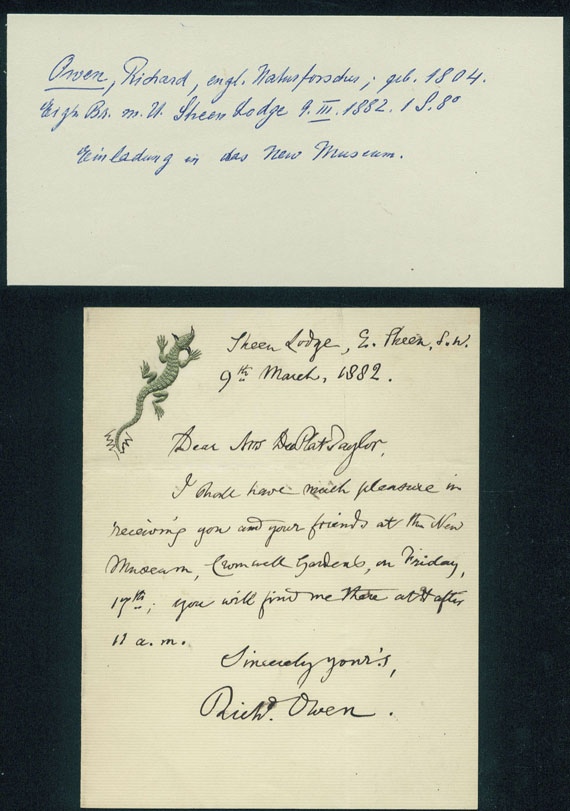 Owen, Richard, engl. Naturforscher; geb. 1804.
Eigh. Br. m. U. Sheen Lodge 9. III. 1882. 1 S. 8°
Einladung in das New Museum.
Sheen Lodge, E. Sheen, S.W.
9th March, 1882.
Dear Mrs Du Plat Taylor,
I shall have much pleasure in
receiving you and your friends at the New
Museum, Cromwell Gardens, on Friday,
17th; you will find me there at & after
11 a.m.
Sincerely your's,
Richd. Owen.